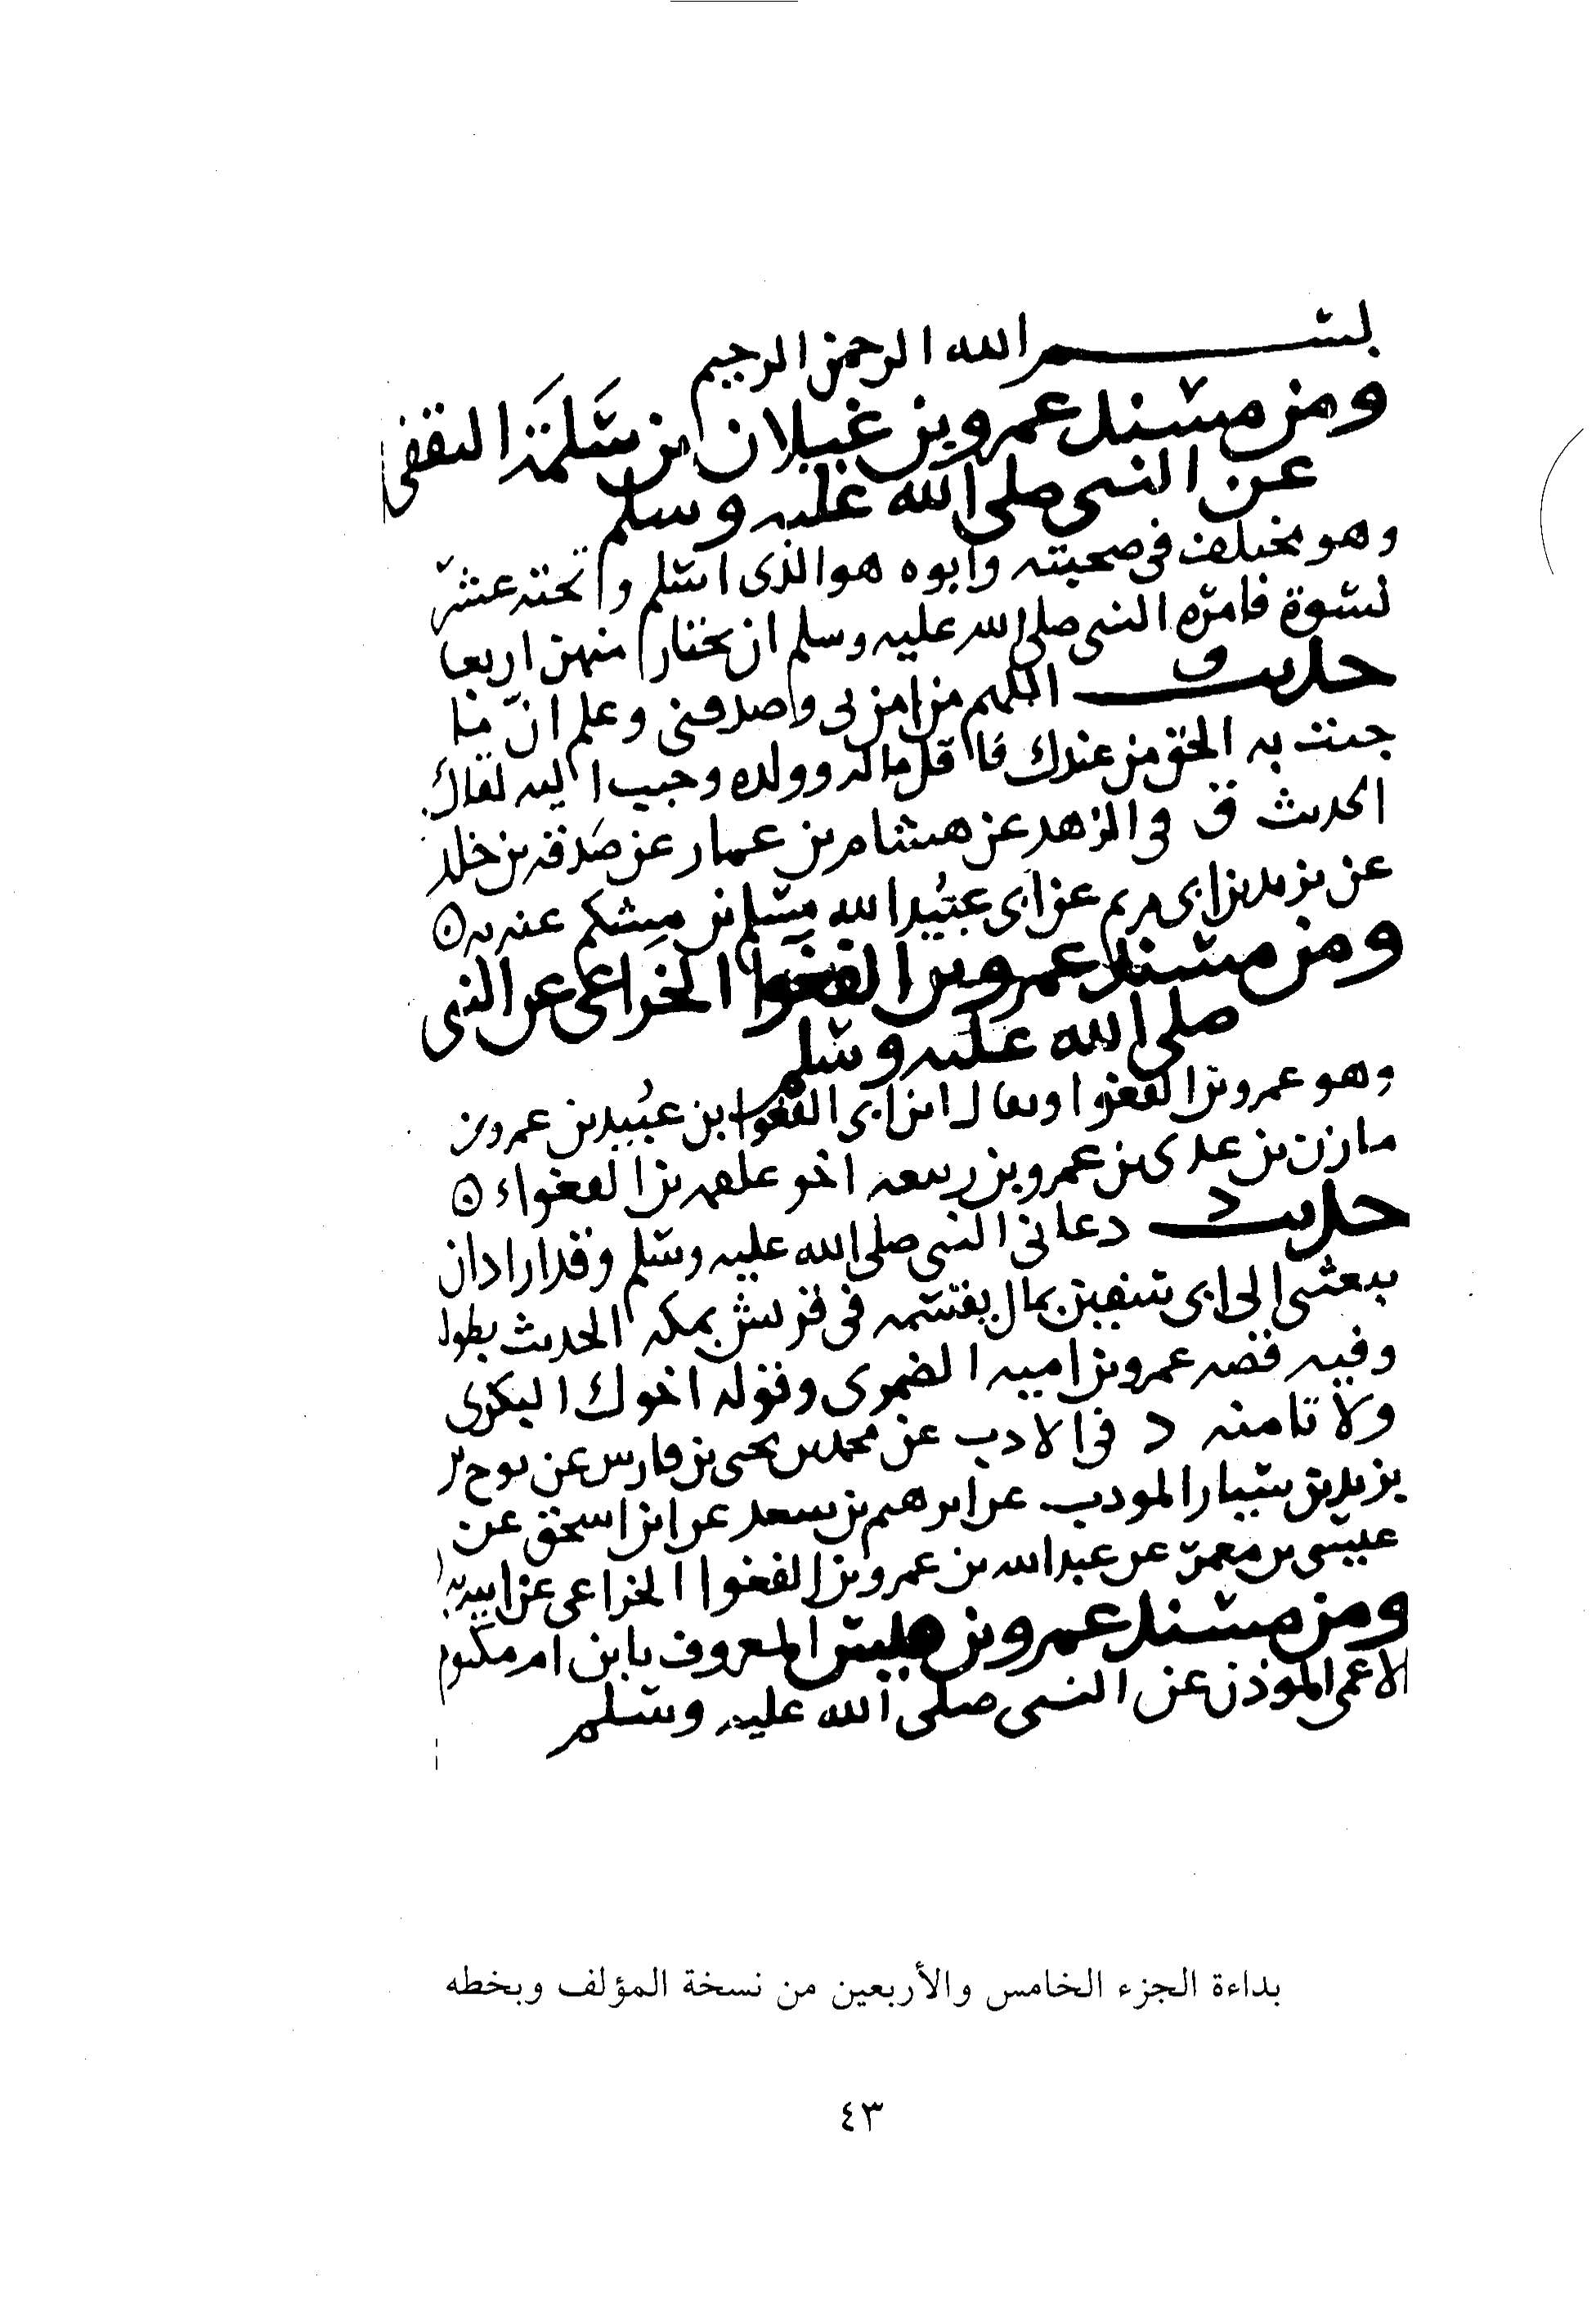 بسم الله الرحمن الرحيم
ومن مسند عمرو بن غيلان ابن سَلَمَة الثقفى
عن النبى صلى الله عليه وسلم
وهو مختلف فى صحبته وابوه هو الذى اسلم وتحته عشر
نسوة فامره النبى صلى الله عليه وسلم ان يختار منهن اربعا
حديث ق اللهم من امن بى وصدقنى وعلم انّ ما
جئت به الحق من عندك فاقل ماله وولده وحبب اليه لقاك
الحديث ق فى الزهد عن هشام بن عمار عن صَدقة بن خلد
عن يزيد بن ابى مريم عن ابى عبُيد الله مسلم بن مِشكم عنه به
ومن مسند عمرو بن الفغوا الخزاعى عن النبى
صلى الله عليه وسلم
وهو عمرو بن الفغوا ويقال ابن ابى الفغوا بن عبُيد بن عمرو بن
مازن بن عدى بن عمرو بن ربيعه اخو علقمه بن الفغواء
حديث د دعانى النبى صلى الله عليه وسلم وقد اراد ان
يبعثنى الى ابى سفين بمال يقسمه فى قريش بمكه الحديث بطوله
وفيه قصه عمرو بن اميه الضمرى وقوله اخوك البكرى
ولا تامنه د فى الادب عن محمد بن يحيى بن فارس عن نوح بن
يزيد بن سيار المودب عن ابرهيم بن سعد عن ابن اسحق عن
عيسى بن معمر عن عبد الله بن عمرو بن الفغوا الخزاعى عن ابيه به
ومن مسند عمرو بن قيس المعروف بابن ام مكتوم
الاعمى الموذن عن النبى صلى الله عليه وسلم
بداءة الجزء الخامس والأربعين من نسخة المؤلف وبخطه
٤٣